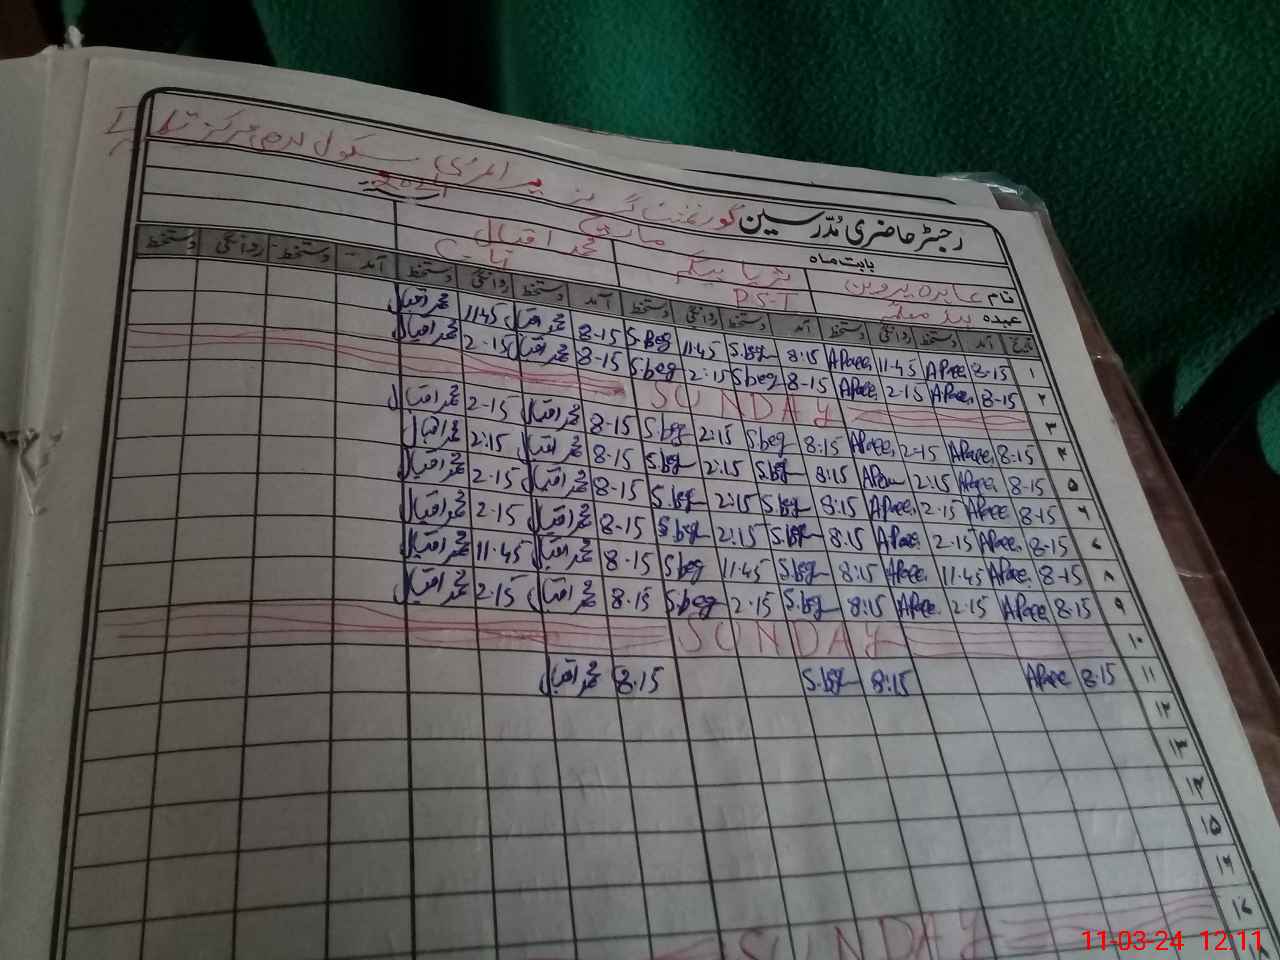 رجسٹر حاضری مُدرسین گورنمنٹ گرلز پرائمری سکول
بابت ماہ مارچ 2024
نام عابدہ پروین ثریا بیگم محمد اقبال
عہدہ ہیڈ ٹیچر P.S.T
تاریخ آمد دستخط روانگی دستخط آمد دستخط روانگی دستخط آمد دستخط روانگی دستخط آمد دستخط روانگی دستخط
۱ 8-15 APaee 11-45 APaee 8:15 S.beg 11:45 S.beg 8-15 محمد اقبال 11:45 محمد اقبال
۲ 8-15 APaee 2-15 APaee 8-15 S.beg 2:15 S.beg 8-15 محمد اقبال 2-15 محمد اقبال
۳ SUNDAY
۴ 8-15 APaee 2-15 APaee 8:15 S.beg 2:15 S.beg 8-15 محمد اقبال 2-15 محمد اقبال
۵ 8-15 APaee 2:15 APaee 8:15 S.beg 2:15 S.beg 8-15 محمد اقبال 2:15 محمد اقبال
۶ 8-15 APaee 2-15 APaee 8:15 S.beg 2:15 S.beg 8-15 محمد اقبال 2-15 محمد اقبال
۷ 8-15 APaee 2-15 APaee 8:15 S.beg 2:15 S.beg 8-15 محمد اقبال 2-15 محمد اقبال
۸ 8-15 APaee 11-45 APaee 8:15 S.beg 11:45 S.beg 8-15 محمد اقبال 11-45 محمد اقبال
۹ 8-15 APaee 2-15 APaee 8:15 S.beg 2-15 S.beg 8-15 محمد اقبال 2-15 محمد اقبال
۱۰ SUNDAY
۱۱ 8-15 APaee 8:15 S.beg 8-15 محمد اقبال
۱۲
۱۳
۱۴
۱۵
۱۶
۱۷ SUNDAY
۱۸
11-03-24 12:11